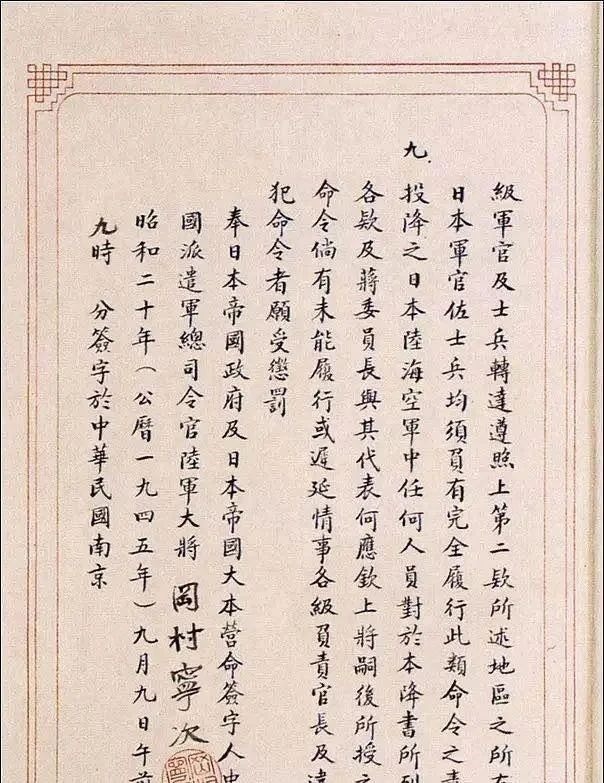 級軍官及士兵轉達遵照上第二欵所述地區之所有
日本軍官佐士兵均須負有完全履行此類命令之責
九、投降之日本陸海空軍中任何人員對於本降書所列
各欵及蔣委員長與其代表何應欽上將嗣後所授之
命令倘有未能履行或遲延情事各級負責官長及違
犯命令者願受懲罰
奉日本帝國政府及日本帝國大本營命簽字人中
國派遣軍總司令官陸軍大將 岡村寧次
昭和二十年（公曆一九四五年）九月九日午前
九時 分簽字於中華民國南京